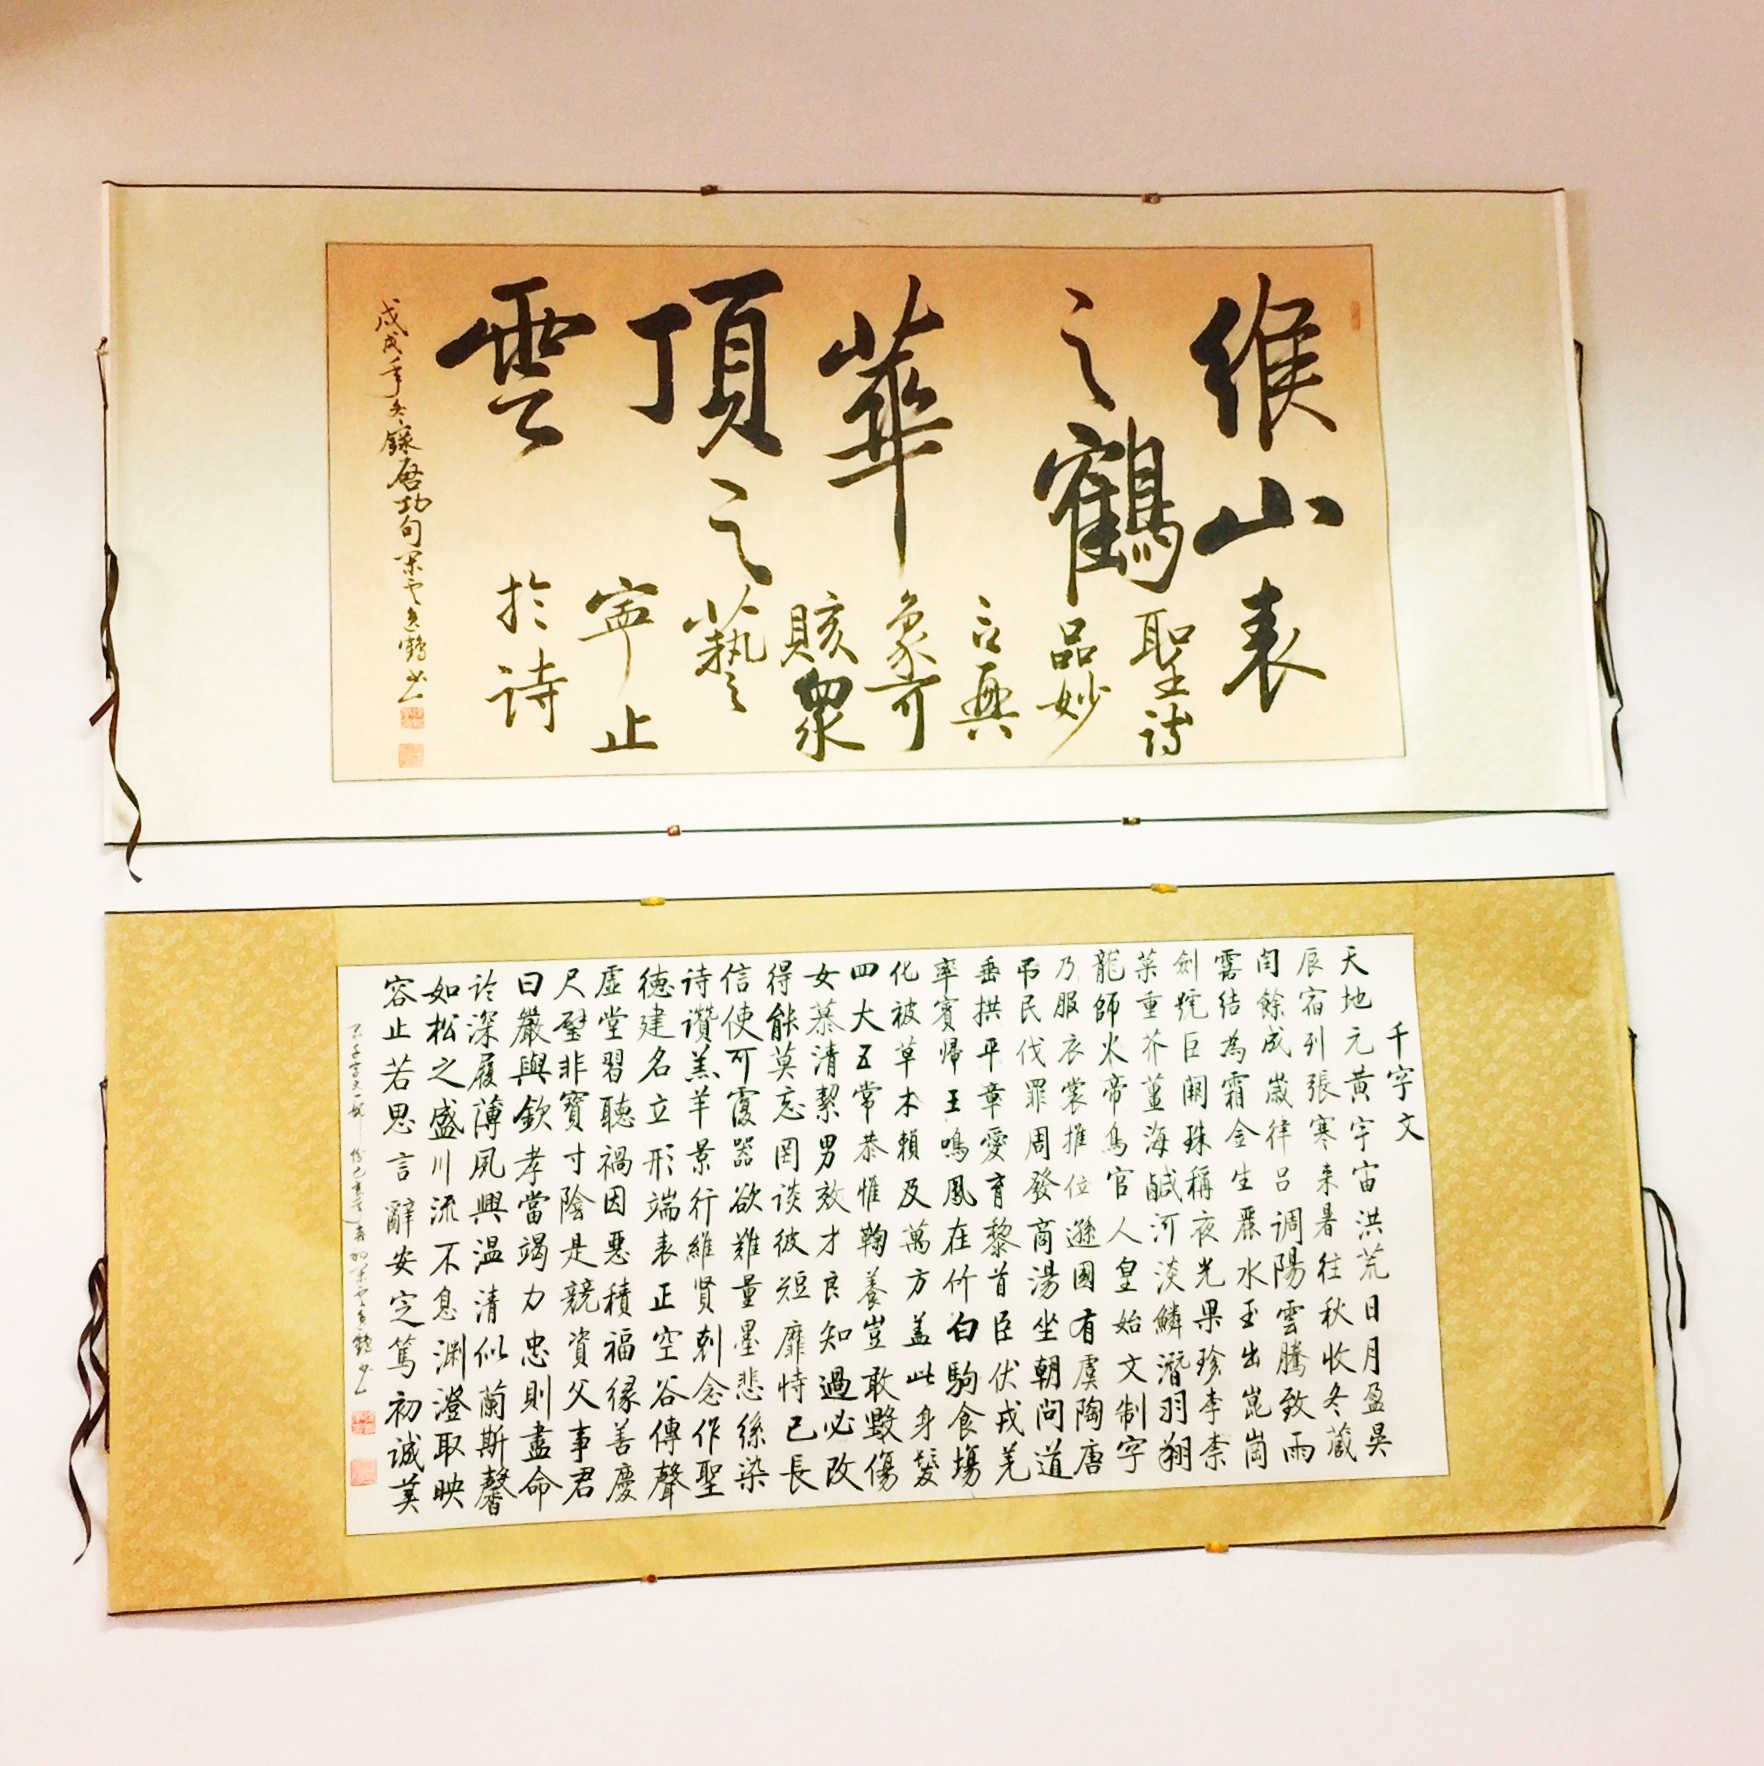 緱山
之鶴
華
頂之
雲
表
聖詩
品妙
言興
象可
賅眾
藝之
寧止
於詩
戊戌年冬錄启功句
千字文
天地元黃宇宙洪荒日月盈昃
辰宿列張寒来暑往秋收冬藏
閏餘成歲律吕调陽雲騰致雨
露結為霜金生麗水玉出崑崗
劍號巨闕珠稱夜光果珍李柰
菜重芥薑海鹹河淡鱗潛羽翔
龍師火帝鳥官人皇始文制字
乃服衣裳推位遜國有虞陶唐
吊民伐罪周發商湯坐朝問道
垂拱平章愛育黎首臣伏戎羌
率賓歸王鳴鳳在竹白駒食場
化被草木賴及萬方盖此身髮
四大五常恭惟鞠養豈敢毀傷
女慕清絜男效才良知過必改
得能莫忘罔談彼短靡恃己長
信使可覆器欲難量墨悲絲染
詩讚羔羊景行維賢剋念作聖
德建名立形端表正空谷傳聲
虛堂習聽禍因惡積福緣善慶
尺璧非寶寸陰是競資父事君
曰嚴與欽孝當竭力忠則盡命
於深履薄夙興温清似蘭斯馨
如松之盛川流不息渊澄取映
容止若思言辭安定篤初誠美